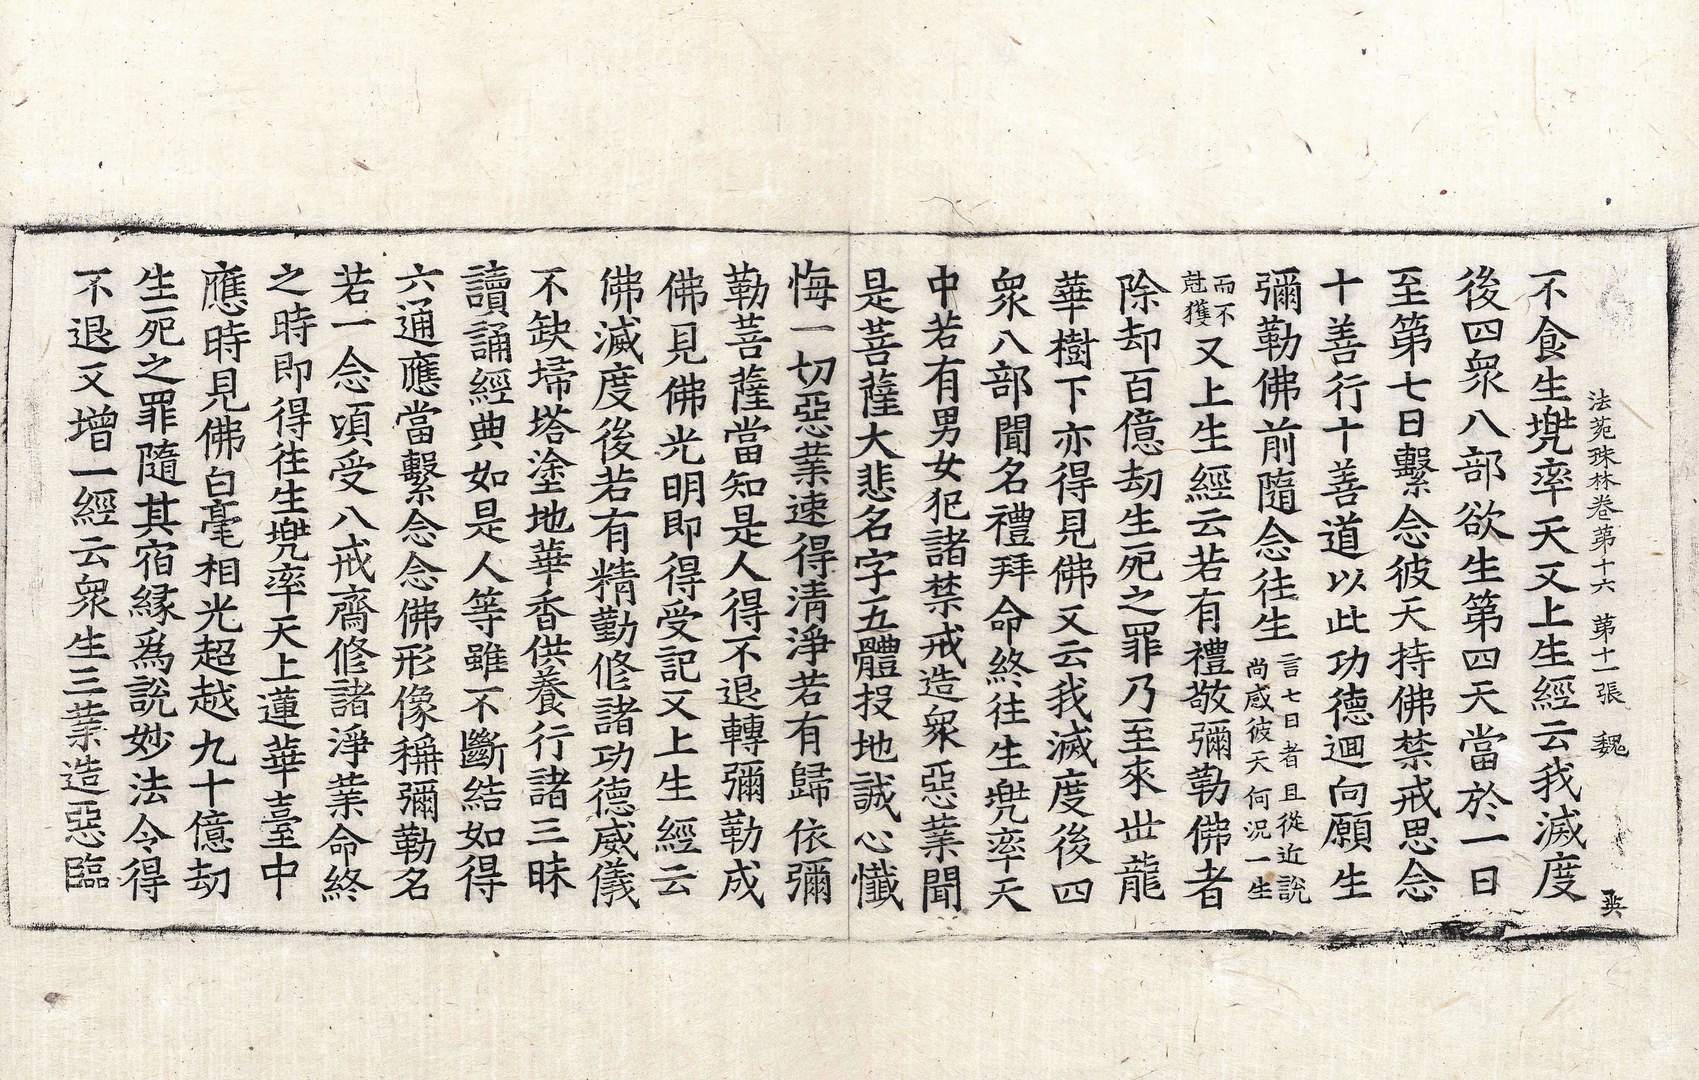 法苑珠林卷第十六　第十一張　魏
不食生兠率天又上生經云我滅度
後四衆八部欲生第四天當於一日
至第七日繫念彼天持佛禁戒思念
十善行十善道以此功德迴向願生
彌勒佛前隨念往生言七日者且從近說尚感彼天何況一生
而不尅獲又上生經云若有禮敬彌勒佛者
除却百億劫生死之罪乃至來世龍
華樹下亦得見佛又云我滅度後四
衆八部聞名禮拜命終往生兠率天
中若有男女犯諸禁戒造衆惡業聞
是菩薩大悲名字五體投地誠心懺
悔一切惡業速得清淨若有歸依彌
勒菩薩當知是人得不退轉彌勒成
佛見佛光明即得受記又上生經云
佛滅度後若有精勤修諸功德威儀
不缺埽塔塗地華香供養行諸三昧
讀誦經典如是人等雖不斷結如得
六通應當繫念念佛形像稱彌勒名
若一念頃受八戒齋修諸淨業命終
之時即得往生兠率天上蓮華臺中
應時見佛白毫相光超越九十億劫
生死之罪隨其宿緣爲說妙法令得
不退又增一經云衆生三業造惡臨